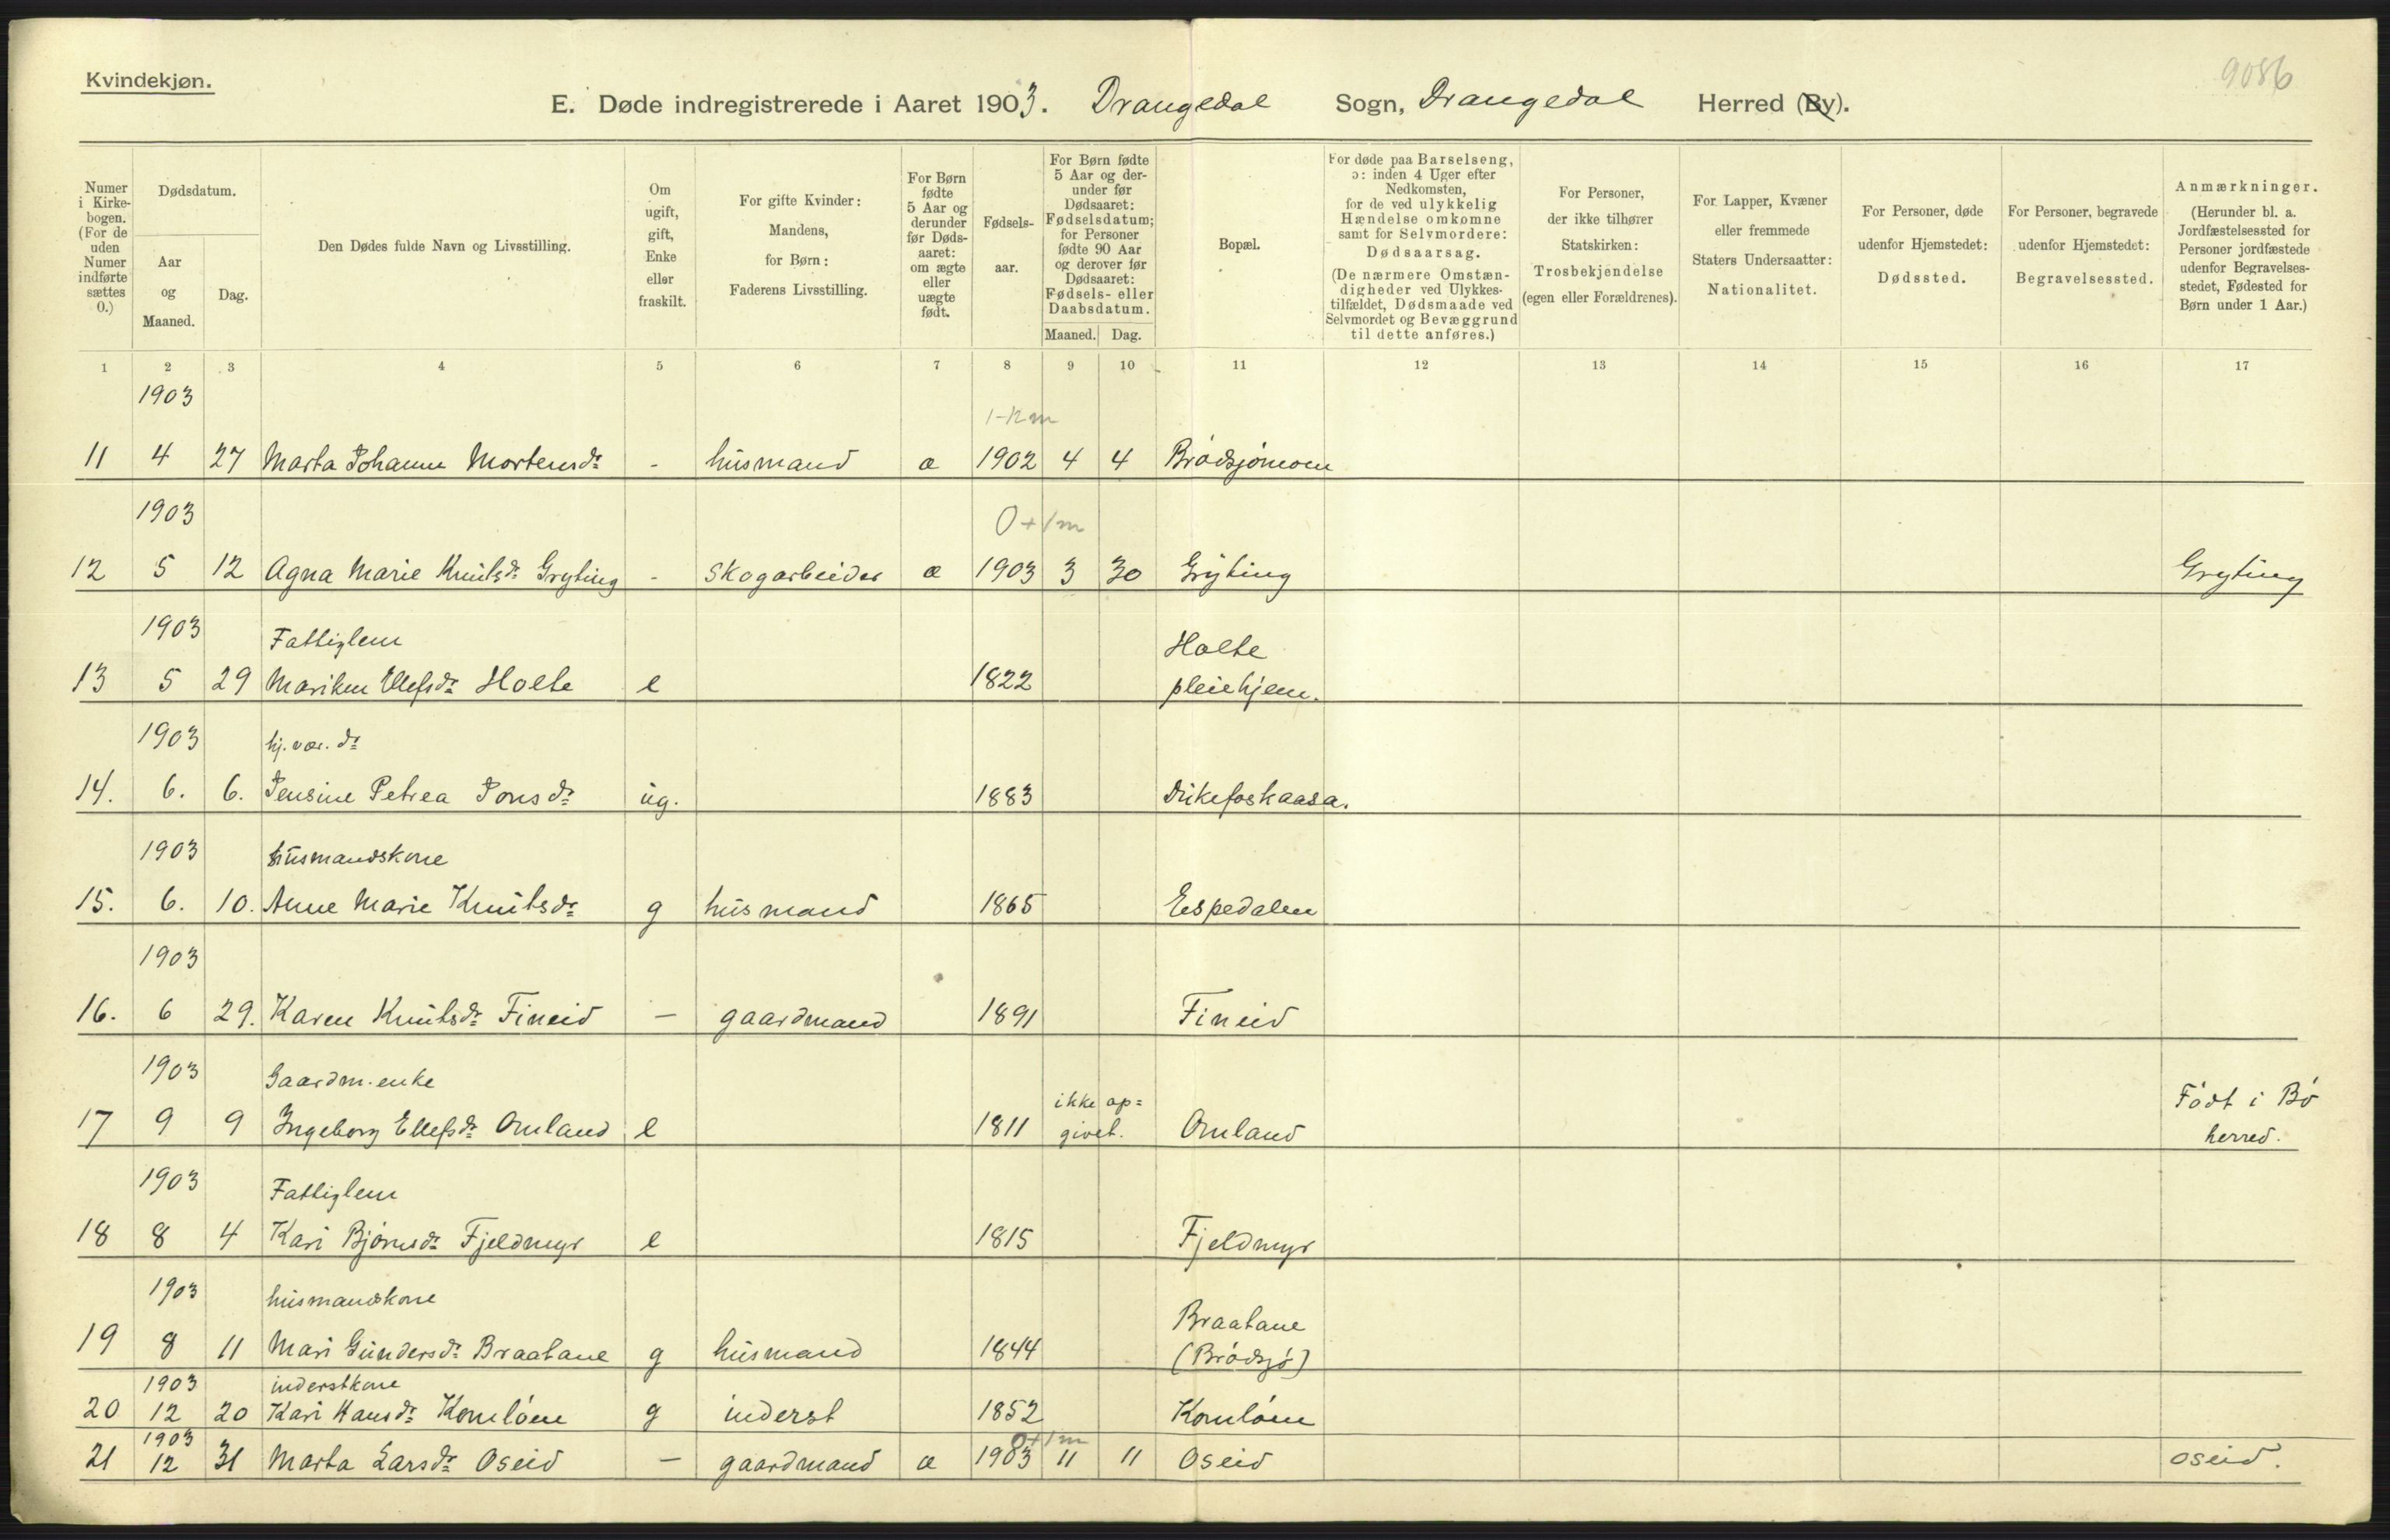 Kvindekjøn.
9086
E. Døde indregistrerede i Aaret 1903. Drangedal Sogn, Drangedal Herred (By).
Numer i Kirkebogen. (For de uden Numer indførte sættes 0.)
Dødsdatum.
Aar og Maaned.
Dag.
Den Dødes fulde Navn og Livsstilling.
Om ugift, gift, Enke eller fraskilt.
For gifte Kvinder: Mandens, for Børn: Faderens Livsstilling.
For Børn fødte 5 Aar og derunder før Dødsaaret: om ægte eller uægte født.
Fødselsaar.
For Børn fødte 5 Aar og derunder før Dødsaaret: Fødselsdatum; for Personer fødte 90 Aar og derover før Dødsaaret: Fødsels- eller Daabsdatum.
Maaned. Dag.
Bopæl.
For døde paa Barselseng, ɔ: inden 4 Uger efter Nedkomsten, for de ved ulykkelig Hændelse omkomne samt for Selvmordere: Dødsaarsag. (De nærmere Omstændigheder ved Ulykkestilfældet, Dødsmaade ved Selvmordet og Bevæggrund til dette anføres.)
For Personer, der ikke tilhører Statskirken: Trosbekjendelse (egen eller Forældrenes).
For Lapper, Kvæner eller fremmede Staters Undersaatter: Nationalitet.
For Personer, døde udenfor Hjemstedet: Dødssted.
For Personer, begravede udenfor Hjemstedet: Begravelsessted.
Anmærkninger. (Herunder bl. a. Jordfæstelsessted for Personer jordfæstede udenfor Begravelsesstedet, Fødested for Børn under 1 Aar.)
1 2 3 4 5 6 7 8 9 10 11 12 13 14 15 16 17
1903
1-12 m
11 4 27 Marta Johanne Mortensdr - husmand æ 1902 4 4 Brødsjømoen
1903
0+1m
12 5 12 Agna Marie Knutsdr Gryting - Skogarbeider æ 1903 3 30 Gryting Gryting
1903 Fattiglem Holte
13 5 29 Mariken Ulefsdr Holte e 1822 pleiehjem.
1903 hj. vær. dr
14. 6. 6. Jensine Petrea Jonsdr ug. 1883
1903 husmandskone
15. 6. 10. Anne Marie Knutsdr g husmand 1865 Espedalen
1903
16. 6 29. Karen Knutsdr Fineid — gaardmand 1891 Fineid
1903 Gaardm. enke ikke op= Født i Bø
17 9 9 Ingeborg Ellefsdr Omland e 1811 givet. Omland herred.
1903 Fattiglem
18 8 4 Kari Bjørnsdr Fjeldmyr e 1815 Fjeldmyr
1903 husmandskone Braatane
19 8 11 Mari Gundersdr Braatane g husmand 1844 (Brødsjø)
1903 inderstkone
20 12 20 Kari Hansdr g inderst 1852
1903 0+1m
21 12 31 Marta Larsdr Oseid — gaardmand æ 1903 11 11 Oseid Oseid.